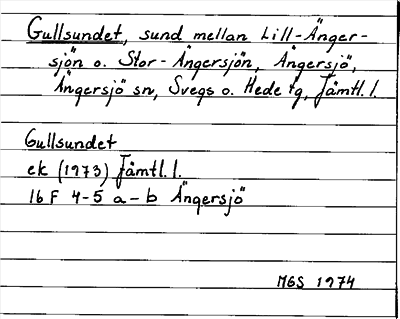 Gullsundet, sund mellan Lill-Änger-
sjön o. Stor-Ängersjön, Ängersjö,
Ängersjö sn, Svegs o. Hede tg, Jämtl. l.
Gullsundet
ek (1973) Jämtl. l.
16 F 4-5 a-b Ängersjö
MGS 1974